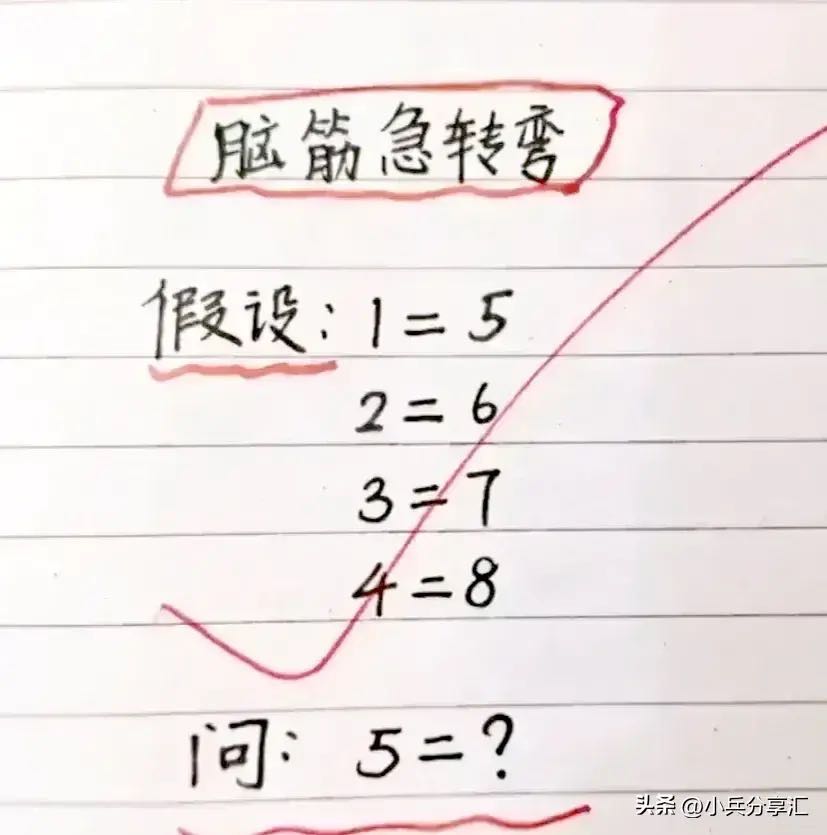 脑筋急转弯
假设: 1=5
2=6
3=7
4=8
问: 5=?
头条 @小兵分享汇